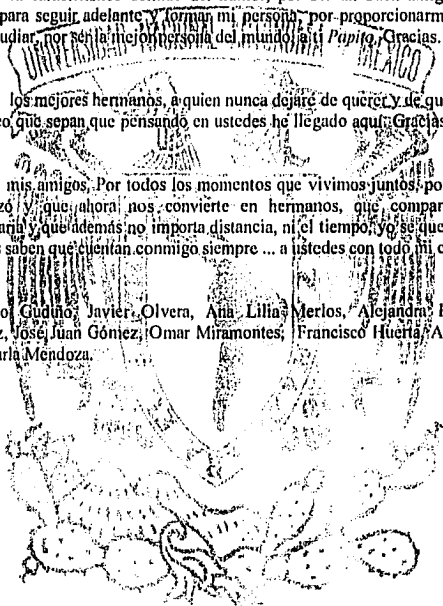 para seguir adelante y formar mi persona, por proporcionarm
udiar, por ser la mejor persona del mundo, a ti Papito. Gracias.
los mejores hermanos, a quien nunca dejaré de querer y de qu
eo que sepan que pensando en ustedes he llegado aquí. Gracias
mis amigos, Por todos los momentos que vivimos juntos, po
zó y que ahora nos convierte en hermanos, que compar
aria y que además no importa distancia, ni el tiempo, yo se que
s saben que cuentan conmigo siempre ... a ustedes con todo mi c
o Gudiño, Javier Olvera, Ana Lilia Merlos, Alejandra
z, José Juan Gómez, Omar Miramontes, Francisco Huerta, A
arla Mendoza.